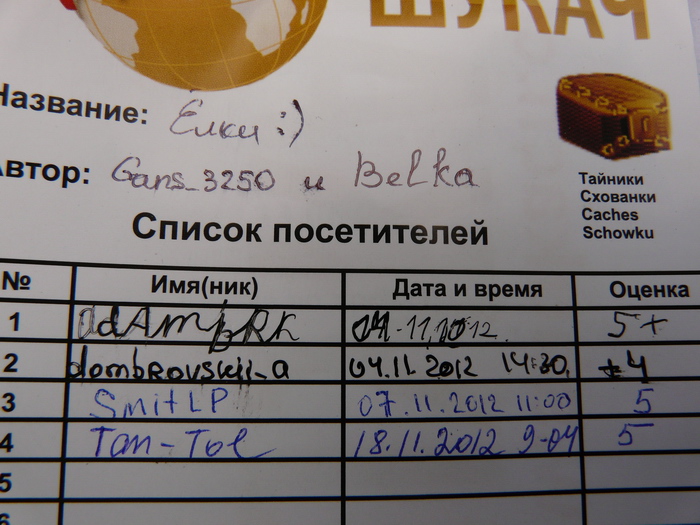 ШУКАЧ
Название: Ёлки :)
Автор: Gans_3250 и Belka
Тайники
Схованки
Caches
Schowku
Список посетителей
№ Имя(ник) Дата и время Оценка
1 04.11.2012. 5+
2 dombrovskij_a 04.11.2012 14:30. +4
3 SmitLP 07.11.2012 11:00 5
4 Tan-Tol 18.11.2012 9-04 5
5
6